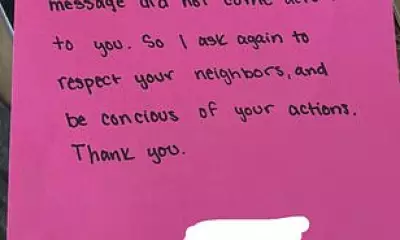 message did not come
to you. So I ask again to
respect your neighbors, and
be concious of your actions.
Thank you.